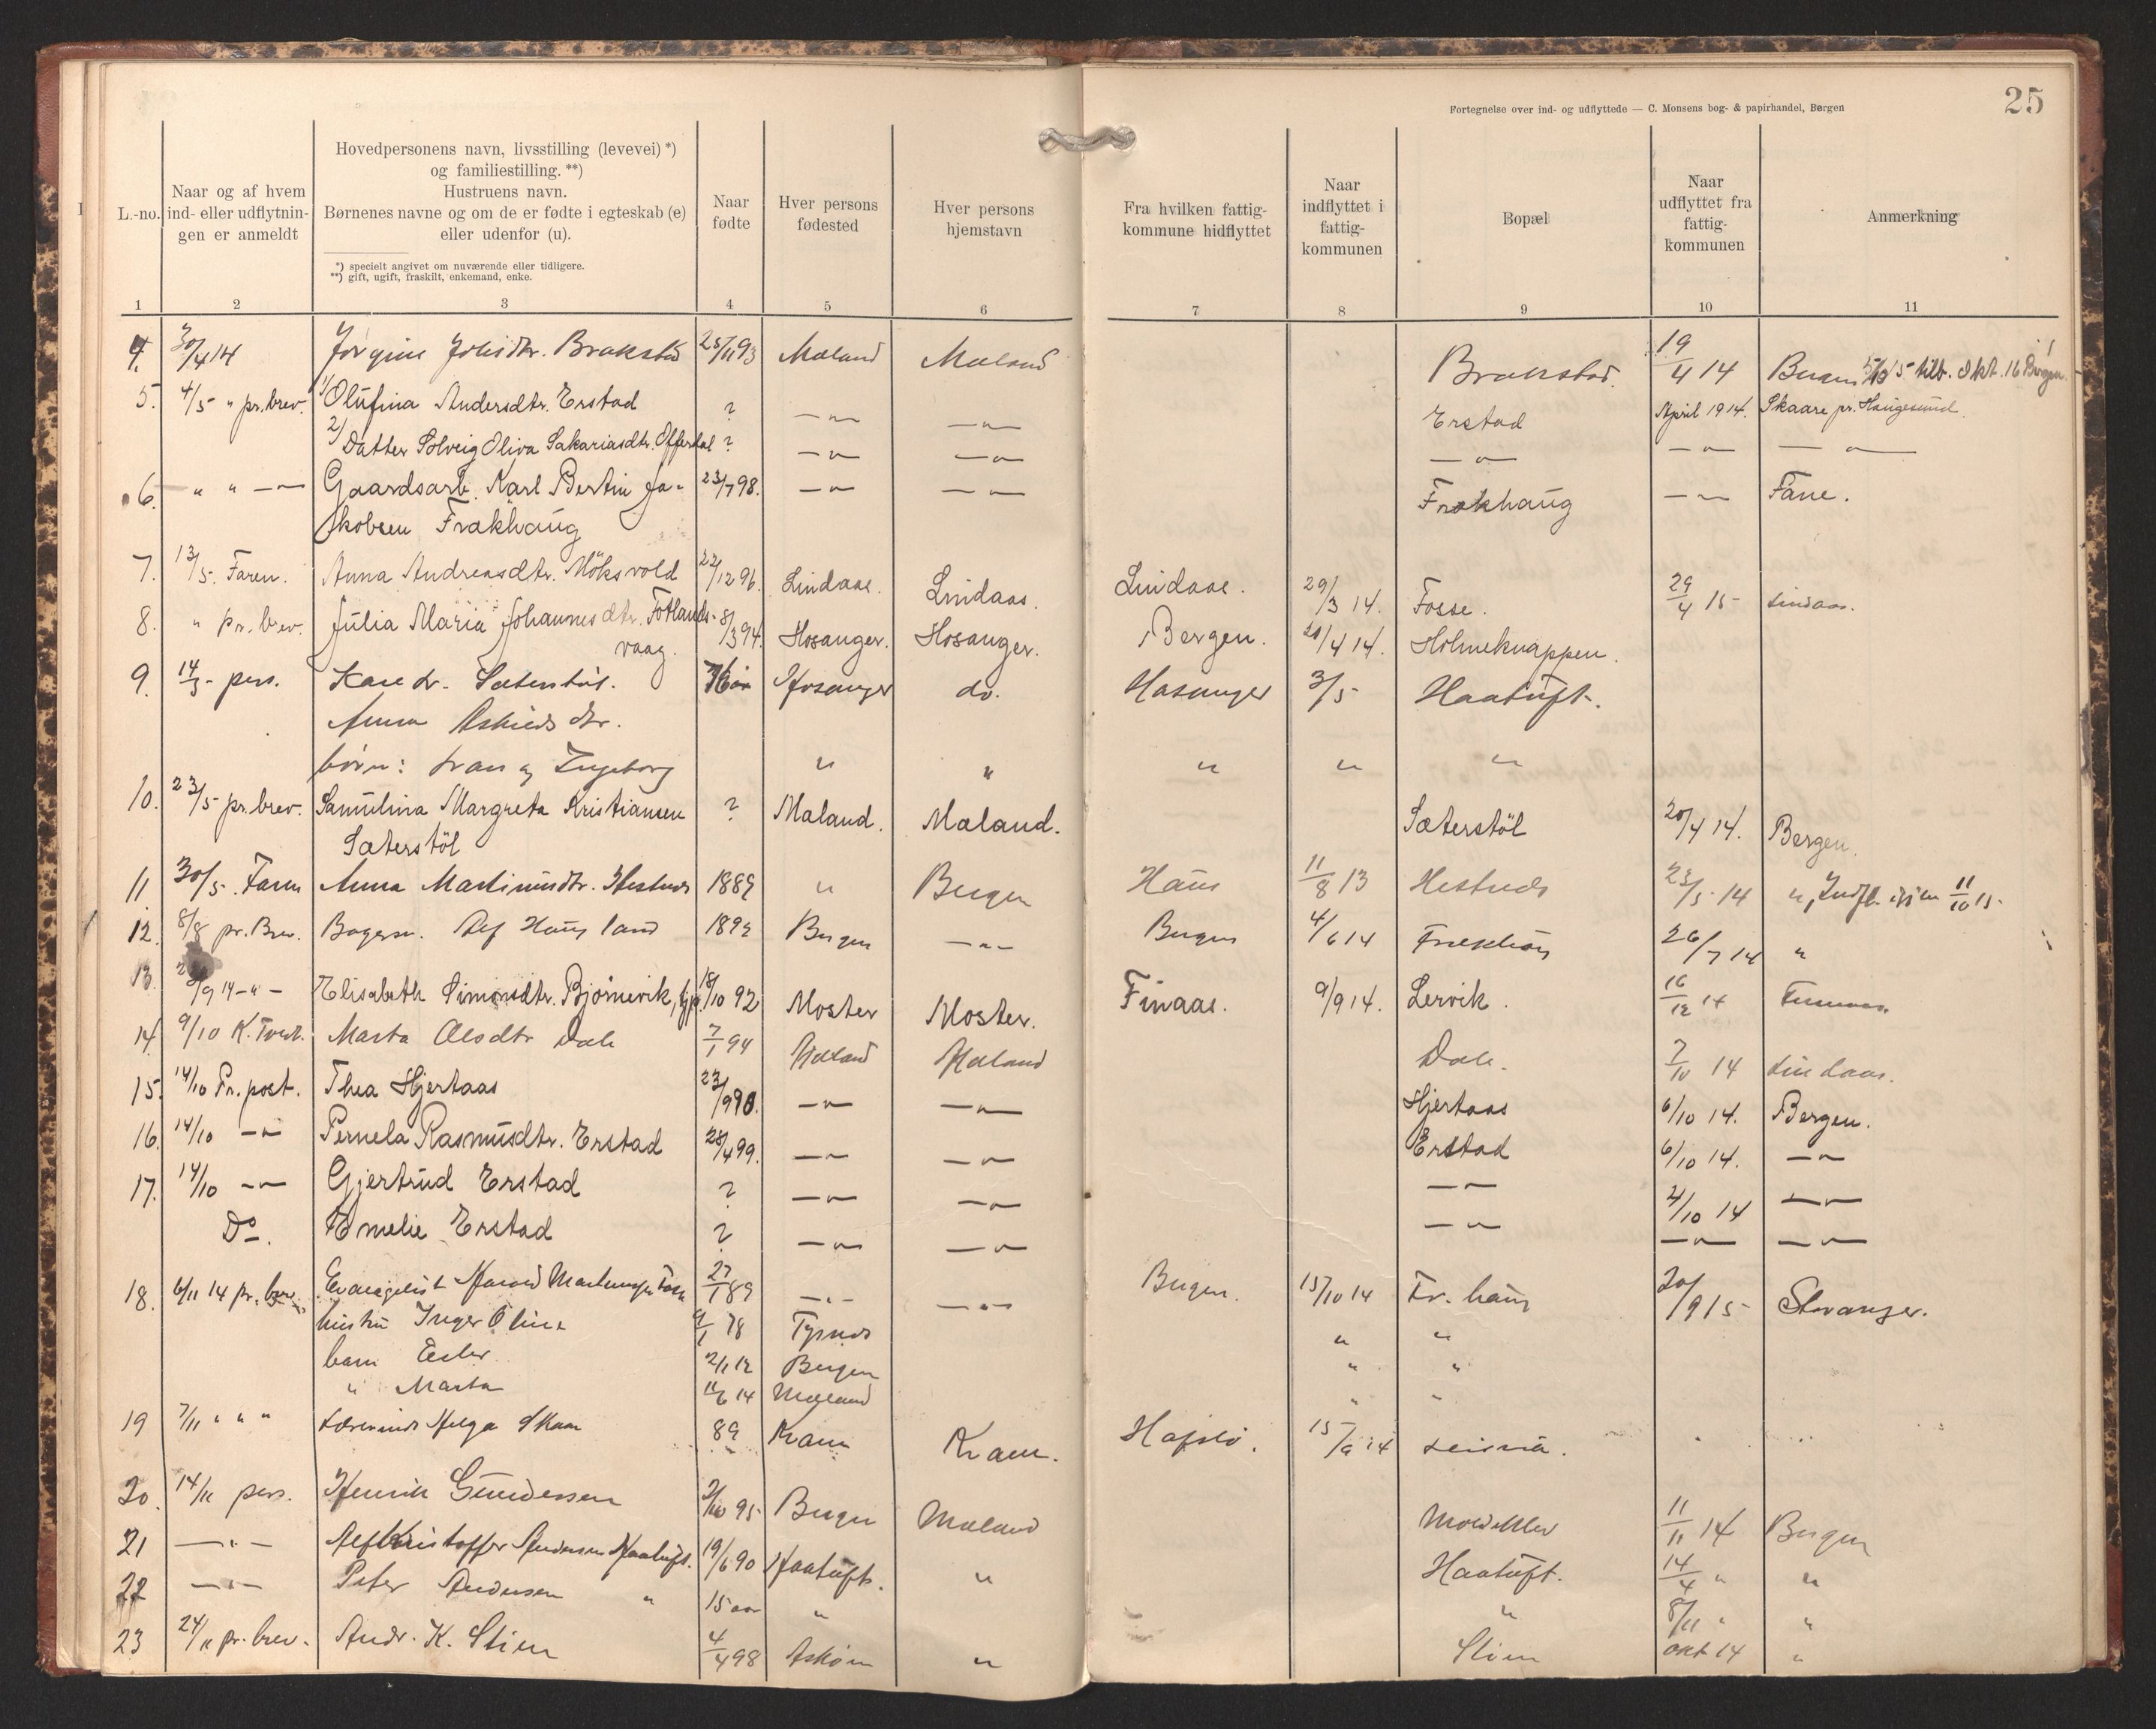 25
Fortegnelse over ind- og udflyttede — C. Monsens bog- & papirhandel, Bergen
L.-no.
Naar og af hvem
ind- eller udflytnin-
gen er anmeldt
Hovedpersonens navn, livsstilling (levevei) *)
og familiestilling. **)
Hustruens navn.
Børnenes navne og om de er fødte i egteskab (e)
eller udenfor (u).
*) specielt angivet om nuværende eller tidligere.
**) gift, ugift, fraskilt, enkemand, enke.
Naar
fødte
Hver persons
fødested
Hver persons
hjemstavn
Fra hvilken fattig-
kommune hidflyttet
Naar
indflyttet i
fattig-
kommunen
Bopæl
Naar
udflyttet fra
fattig-
kommunen
Anmerkning
1 2 3 4 5 6 7 8 9 10 11
4. 30/4 14 Jørgine Johsdtr. Brakstad 25/11 93 Mæland Mæland Brakstad. 19/4 14 tilb. Okt. 16 Bergen
5. 4/5 " pr. brev. 1/ Olüfina Andersdtr. Erstad ? —"— —"— Erstad April 1914. Skaare pr. Haugesund.
2/ Datter Solveig Oliva Sakariasdtr. Offerdal ? —"— —"— —"— —"— —"—
6. " " —"— Gaardsarb. Karl Bertin Ja- 23/7 98. —"— —"— Frækhaug —"— Fane.
kobsen Frækhaug
7. 13/5. Faren. Anna Andreasdtr. Möksvold 22/12 96. Lindaas. Lindaas. Lindaas. 29/3 14. Fosse. 29/4 15 Lindaas.
8. " pr. brev. Julia Maria Johannesdtr. Fotlands- 8/3 94. Hosanger. Hosanger. Bergen. 21/4 14. Holmeknappen.
vaag.
9. 14/5 - pers. Sæterstöl. Hosanger do. Hosanger 3/5 Haatuft.
Anna
børn: og Ingeborg " " " " "
10. 23/5 pr. brev. Samulina Margreta Kristiansen ? Mæland. Mæland. Sæterstöl 20/4 14. Bergen.
Sæterstöl
11 30/5. Faren Anna Martinusdtr. Hestnes 1889 " Bergen Haus 11/8 13 Hestnes 23/5 14 ", Indfl. igjen 11/10 15.
12. 8/8 pr. Brev. Bagersv. Alf Hausland Bergen —"— Bergen 4/6 14 Frækhaug 26/7 14 "
13. /9 14 —"— Elisabeth Simonsdtr. Bjørnevik, 18/10 92 Moster Moster. Finaas. 9/9 14. Lervik. 16/12 14
14. 9/10 K. Tveit. Marta Olsdtr Dale 7/1 94 Mæland Mæland Dale. 7/10 14 Lindaas.
15. 14/10 Fr. post. Thea Hjertaas 23/9 98. —"— —"— Hjertaas 6/10 14. Bergen.
16. 14/10 —"— Pernela Rasmusdtr. Erstad 28/4 99. —"— —"— Erstad 6/10 14. —"—
17. 14/10 —"— Gjertrud Erstad ? —"— —"— —"— 4/10 14 —"—
Do. Emelie Erstad ? —"— —"— —"— —"— —"—
18. 6/11 14 pr. brev Evangelist Harald 27/1 89 —"— —"— Bergen. 15/10 14 Fr. haug 20/9 15 Stavanger.
hustru Inger Oline 9/1 78 Tysnes " "
barn Ester 2/1 12 Bergen " "
" Marta 14 Mæland " "
19 7/11 " " " Lærerinde Helga Skaar 89 Kvam Kvam. Hafslo. 15/9 14 Leisvia.
20. 14/11 pers. Henrik Gundersen 95 Bergen Mæland Moldekleiv 11/11 14 Bergen
21 —"— Alf Kristoffer Andersen Haatuft. 19/6 90 Haatuft. " Haatuft. 14/4 " "
22 —"— Peter Andersen " 15 aar " " 8/11 " "
23 24/11 pr. brev. Andr. K. Stien 4/4 98 Askøen " Stien okt 14 "